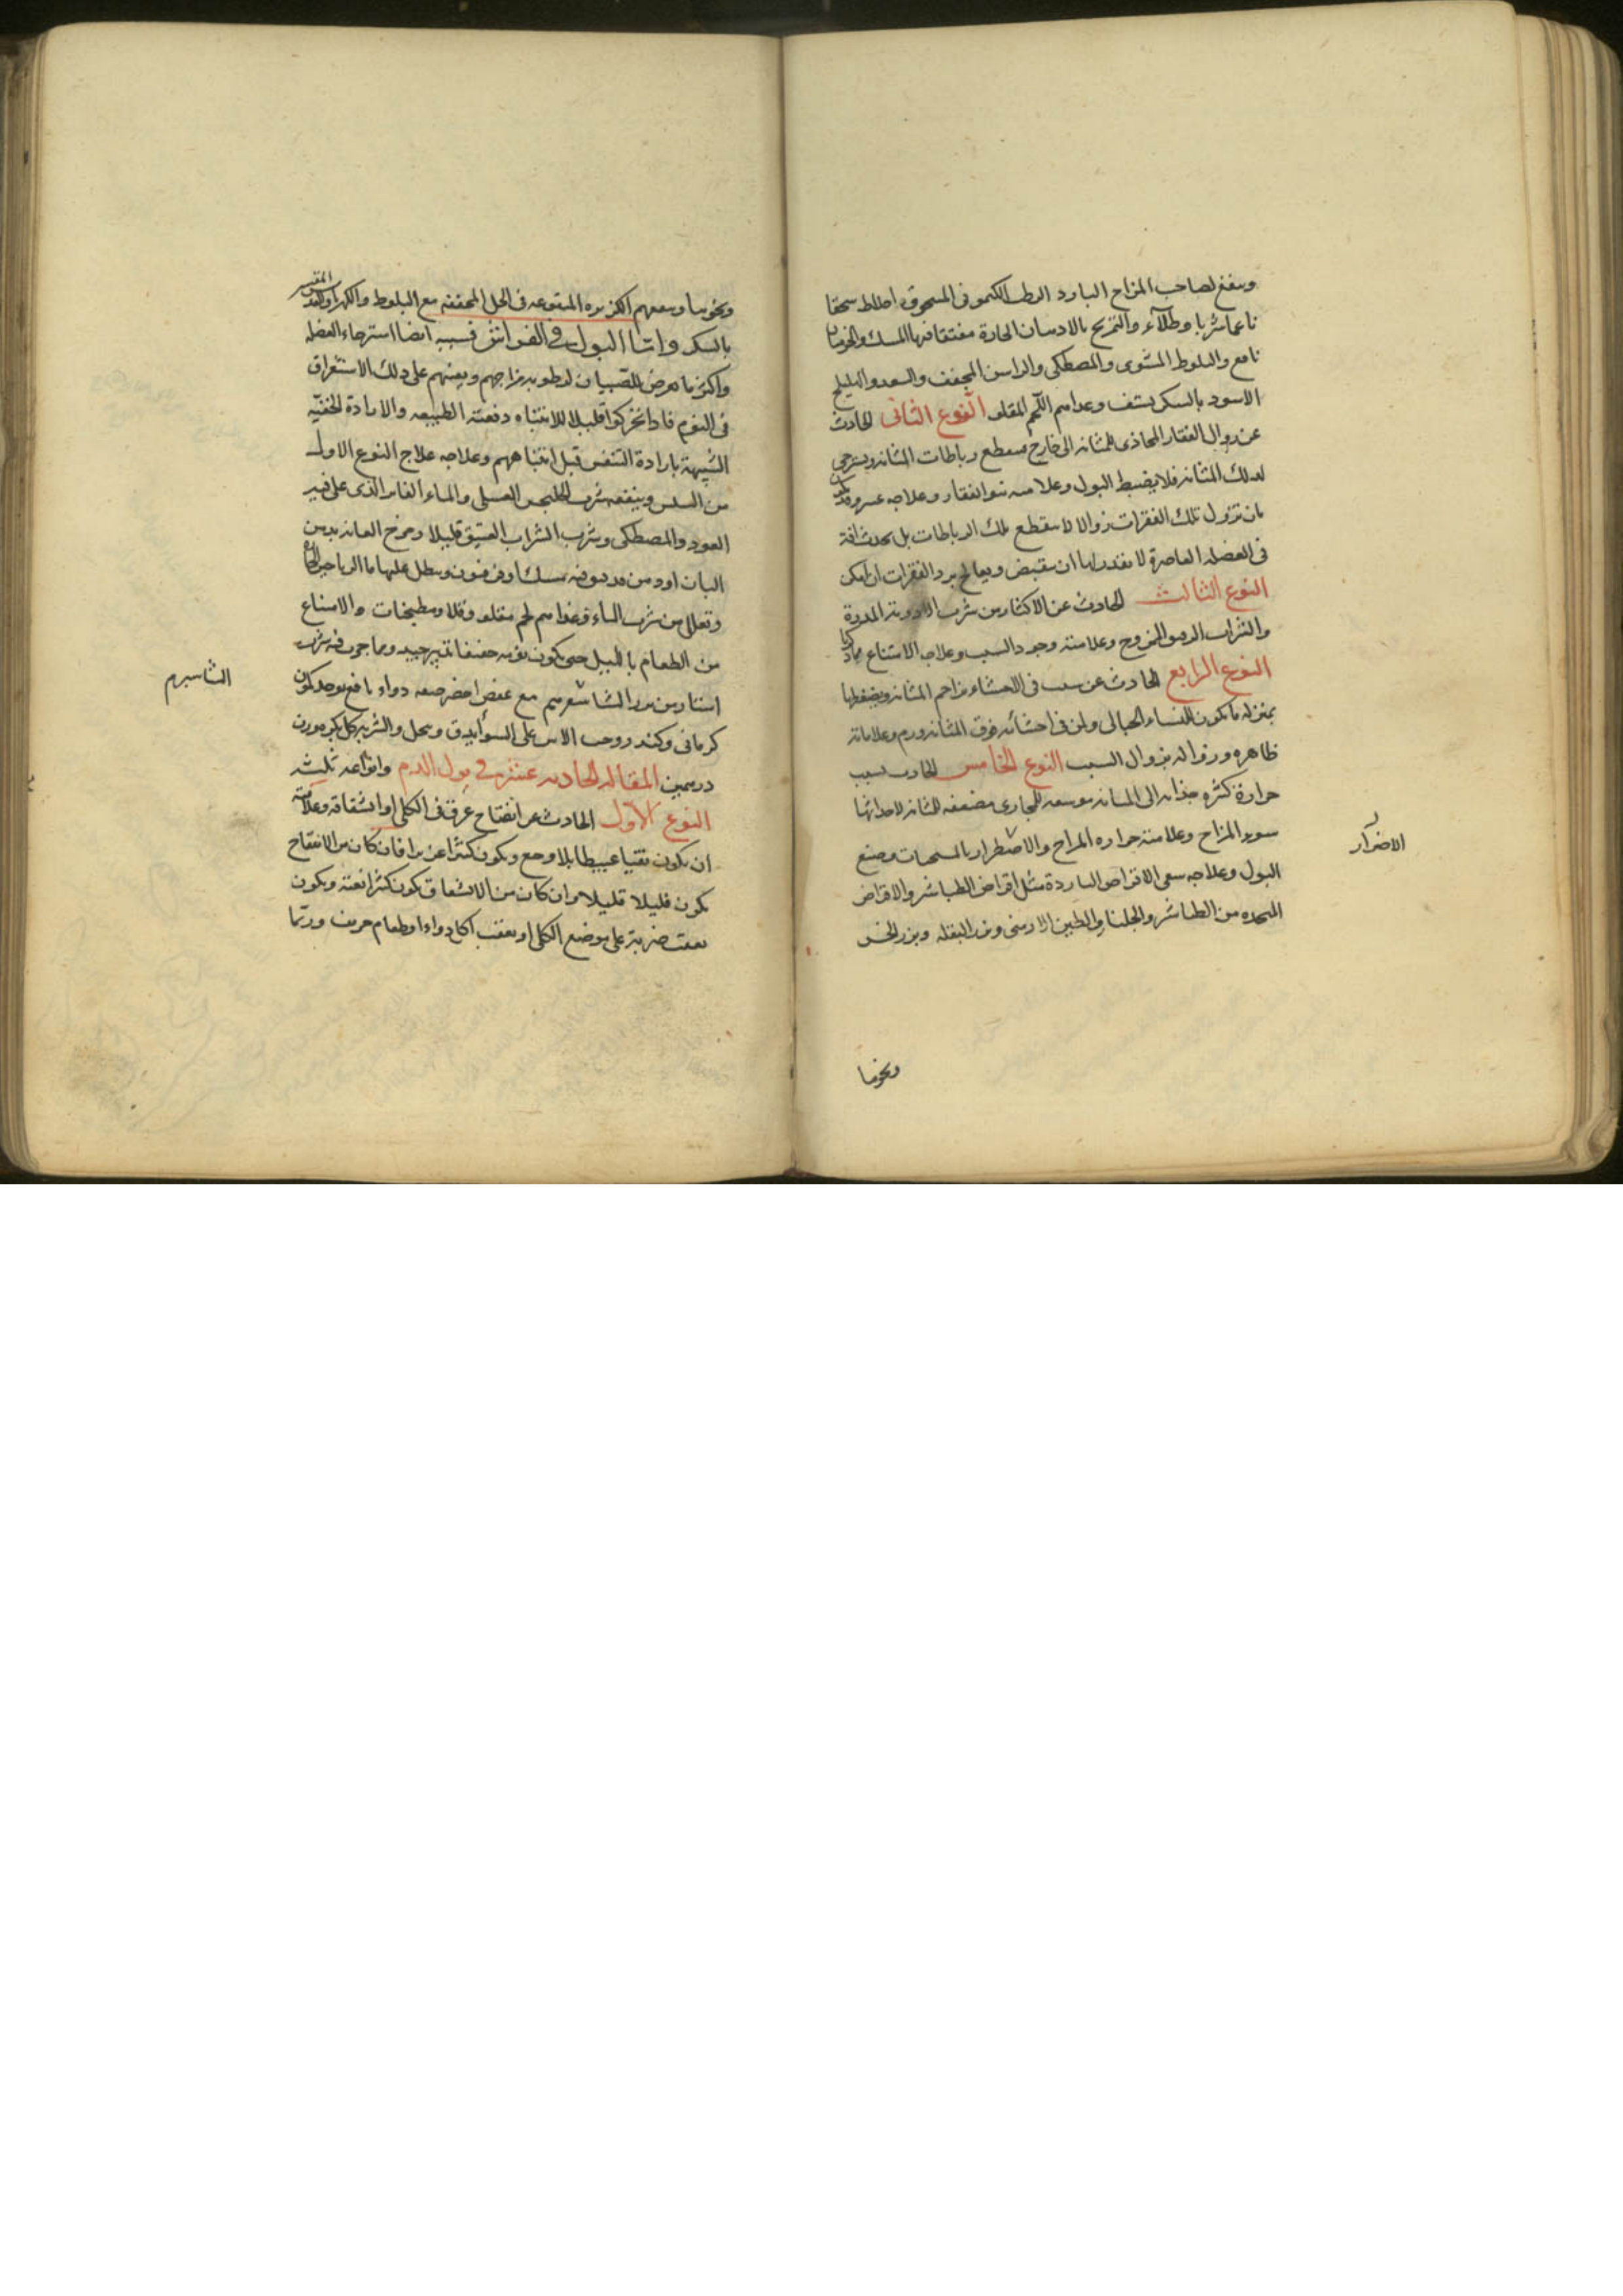 وينفع لصاحب المزاج البارد الرطب الكمونى المسحوق اخلاطه سحقا
ناعما شربا وطلاء والتمريخ بالادهان الحارة مفتقا فيها المسك والجندبيدستر
نافع والبلوط المشوى والمصطكى والراسن المجفف والسعد والهليلج
الاسود بالسكر يستف وغذاهم اللحم المقلو النوع الثانى الحادث
عن زوال الفقار المحاذى للمثانه الى خارج فينقطع رباطات المثانه ويسترخى
لذلك المثانه فلا يضبط البول وعلامته نتو الفقار وعلاجه عسر وقد يكون
بان تزول تلك الفقرات زوالا لا ينقطع تلك الرباطات بل يحدث افة
فى العضلة العاصرة لا تقدر لها ان تنقبض ويعالج برد الفقرات ان امكن
النوع الثالث الحادث عن الاكثار من شرب الادوية المدرة
والشراب الرقيق الممزوج وعلامته وجود السبب وعلاجه الامتناع مما ذكرنا
النوع الرابع الحادث عن سبب فى الاحشاء يزاحم المثانه ويضغطها
بمنزلة ما يكون للنساء الحبالى ولمن فى احشائه فوق المثانه ورم وعلاماته
ظاهره وزواله بزوال السبب النوع الخامس الحادث بسبب
حرارة كثيره جذابه الى المثانه موسعه للمجارى مضعفه للمثانه لاحداثها
سوء المزاج وعلامته حراره المزاج والاضطرار بالمسخنات وصبغ
الاضرار
البول وعلاجه سقى الاقراص الباردة مثل اقراص الطباشير والاقراص
المتخذه من الطباشير والجلنار والطين الارمنى وبزر البقله وبزر الخس
ونحوها
ونحوها وينفعهم الكزبره المنقوعه فى الخل المجففه مع البلوط والكهربا والعدس المقشر
بالسكر واما البول فى الفراش فسببه ايضا استرخاء العضله
واكثر ما يعرض للصبيان لرطوبة مزاجهم ويعينهم على ذلك الاستغراق
فى النوم فاذا تحركوا قليلا للانتباه دفعته الطبيعه والارادة الخفيه
الشبيهة بارادة التنفس قبل انتباههم وعلاجه علاج النوع الاول
من السلس وينفعه شرب الخلنجبين العسلى والماء الفاتر الذى على فيه
العود والمصطكى وشرب الشراب العتيق قليلا ومرخ العانه بدهن
البان او دهن مدوف فيه مسك او فرفيون وينطل عليها ما الرياحين الحاره
وتقلل من شرب الماء وغذاهم لحم مقلو وقلايا ومطبخات والامتناع
من الطعام بالليل حتى يكون نومه خفيفا تدبير جيد ومما جرب فيه شرب
استار من بزر الشاهسفرم مع عفص اخضر صفه دواء نافع يوخذ كمون
الشاسبرم
كرمانى وكندر وحب الاس على السواء يدق وينخل والشربه كل بكره وزن
درهمين المقاله الحاديه عشر فى بول الدم وانواعه ثلثه
النوع الاول الحادث عن انفتاح عرق فى الكلى او انشقاقه وعلامته
ان يكون نقيا عبيطا بلا وجع ويكون كثيرا غزيرا فان كان من الانفتاح
يكون قليلا قليلا وان كان من الانشقاق يكون كثيرا بغته ويكون
بعقب ضربة على موضع الكلى او بعقب اكل دواء او طعام حريف وربما